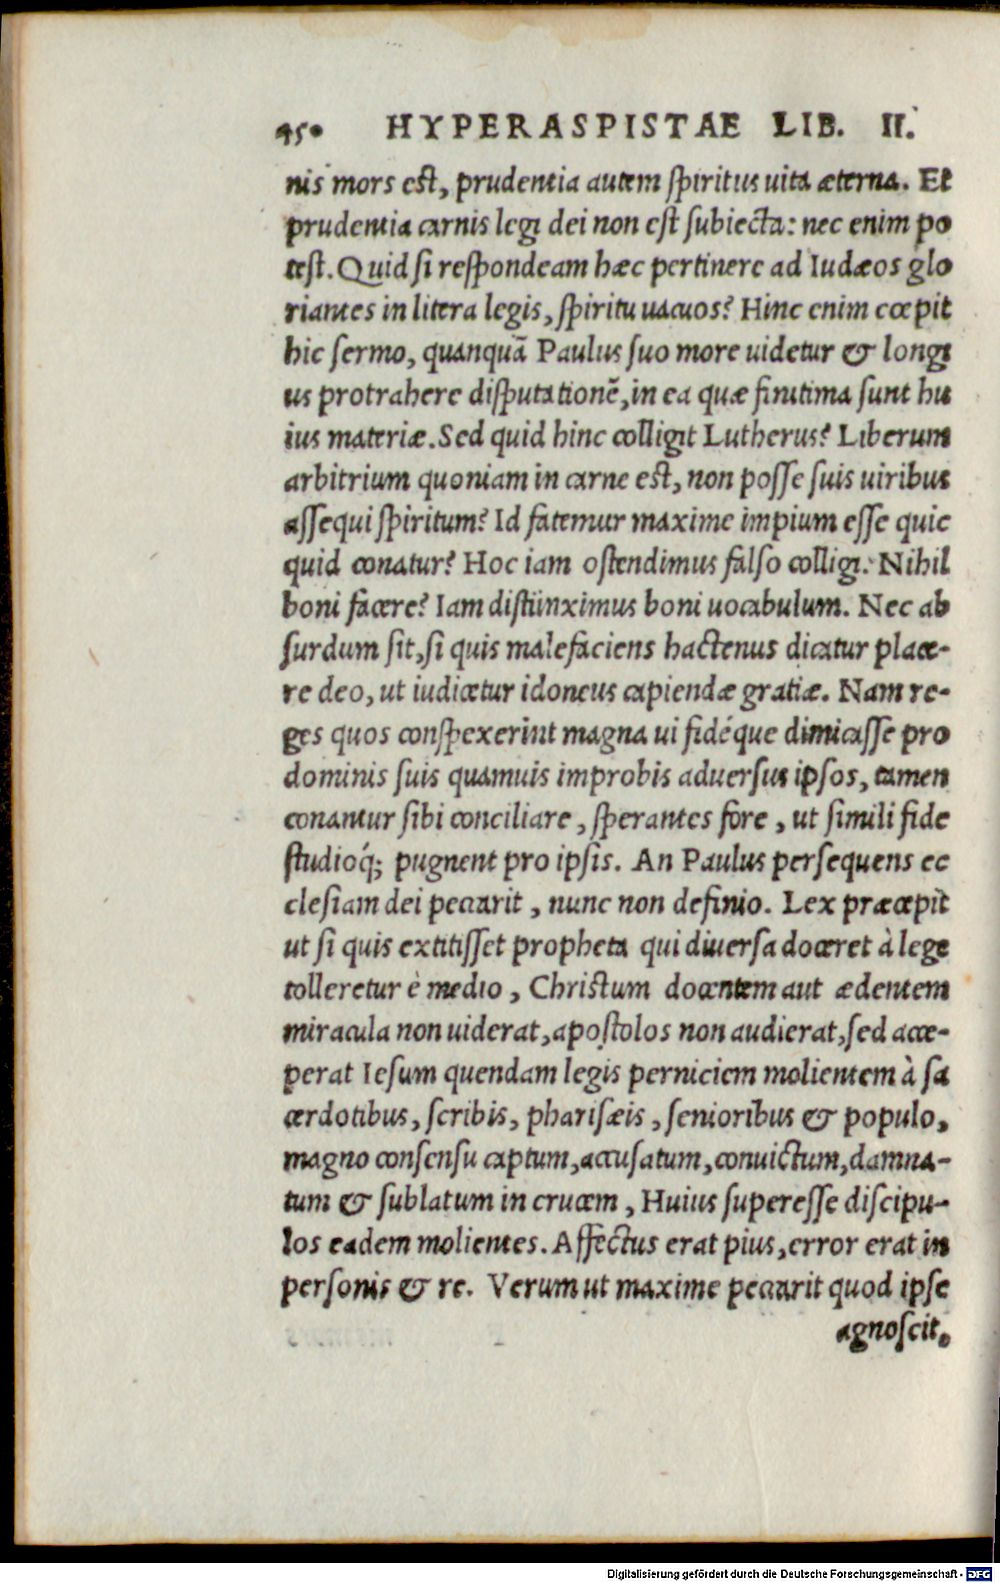 450 HYPERASPISTAE LIB. II.
nis mors est, prudentia autem spiritus uita æterna. Et
prudentia carnis legi dei non est subiecta: nec enim po
test. Quid si respondeam hæc pertinere ad Iudæos glo
riantes in litera legis, spiritu uacuos? Hinc enim cœpit
hic sermo, quanquã Paulus suo more uidetur & longi
us protrahere disputationẽ, in ea quæ finitima sunt hu
ius materiæ. Sed quid hinc colligit Lutherus? Liberum
arbitrium quoniam in carne est, non posse suis uiribus
assequi spiritum? Id fatemur maxime impium esse quic
quid conatur? Hoc iam ostendimus falso colligi. Nihil
boni facere? Iam distinximus boni uocabulum. Nec ab
surdum sit, si quis malefaciens hactenus dicatur place-
re deo, ut iudicetur idoneus capiendæ gratiæ. Nam re-
ges quos conspexerint magna ui fidéque dimicasse pro
dominis suis quamuis improbis aduersus ipsos, tamen
conantur sibi conciliare, sperantes fore, ut simili fide
studioq́; pugnent pro ipsis. An Paulus persequens ec
clesiam dei peccarit, nunc non definio. Lex præcepit
ut si quis extitisset propheta qui diuersa doceret à lege
tolleretur è medio, Christum docentem aut ædentem
miracula non uiderat, apostolos non audierat, sed acce-
perat Iesum quendam legis perniciem molientem à sa
cerdotibus, scribis, pharisæis, senioribus & populo,
magno consensu captum, accusatum, conuictum, damna-
tum & sublatum in crucem, Huius superesse discipu-
los eadem molientes. Affectus erat pius, error erat in
personis & re. Verum ut maxime peccarit quod ipse
agnoscit,
Digitalisierung gefördert durch die Deutsche Forschungsgemeinschaft - DFG